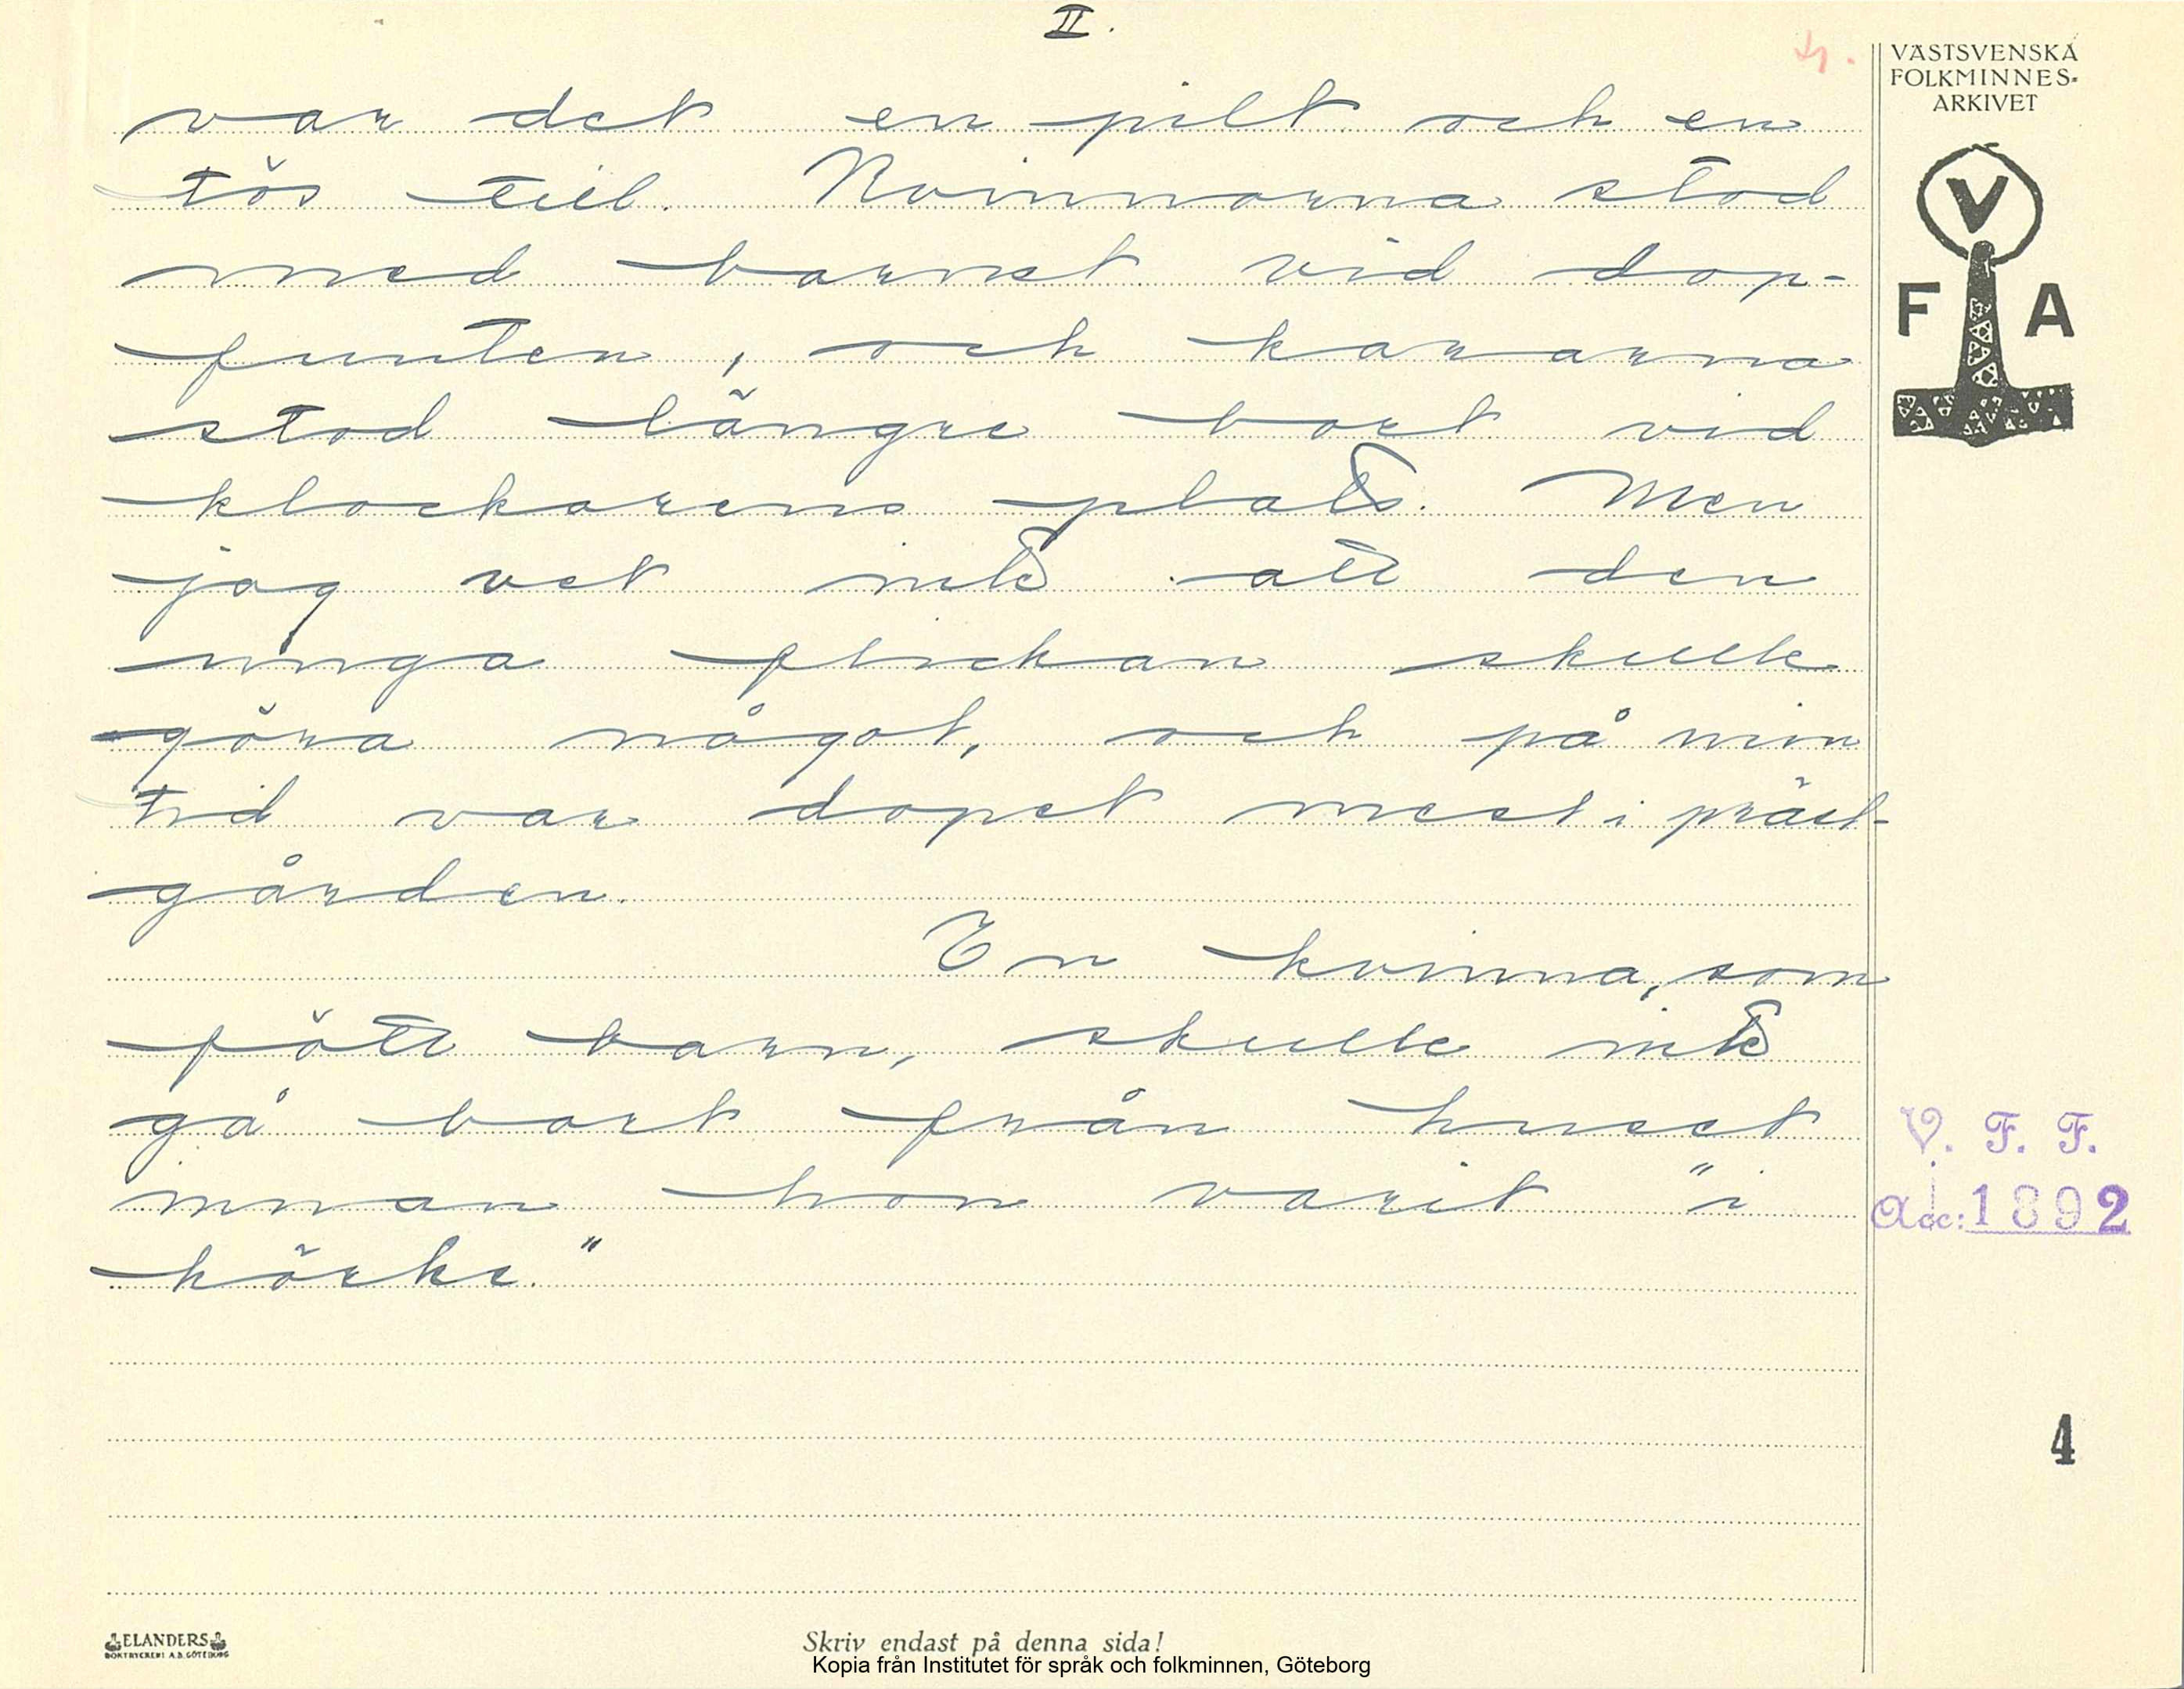 II.
4.
VÄSTSVENSKA
FOLKMINNES-
ARKIVET
V
F A
var det en pilt och en
tös till. Kvinnorna stod
med barnet vid dop-
funten, och kararna
stod längre bort vid
klockarens plats. Men
jag vet inte att den
unga flickan skulle
göra något, och på min
tid var dopet mest i präst-
gården.
En kvinna, som
fött barn, skulle inte
gå bort från huset
innan hon varit "i
körke."
V. F. F.
Acc: 1892
4
ELANDERS
BOKTRYCKERI A.B. GÖTEBORG
Skriv endast på denna sida!
Kopia från Institutet för språk och folkminnen, Göteborg